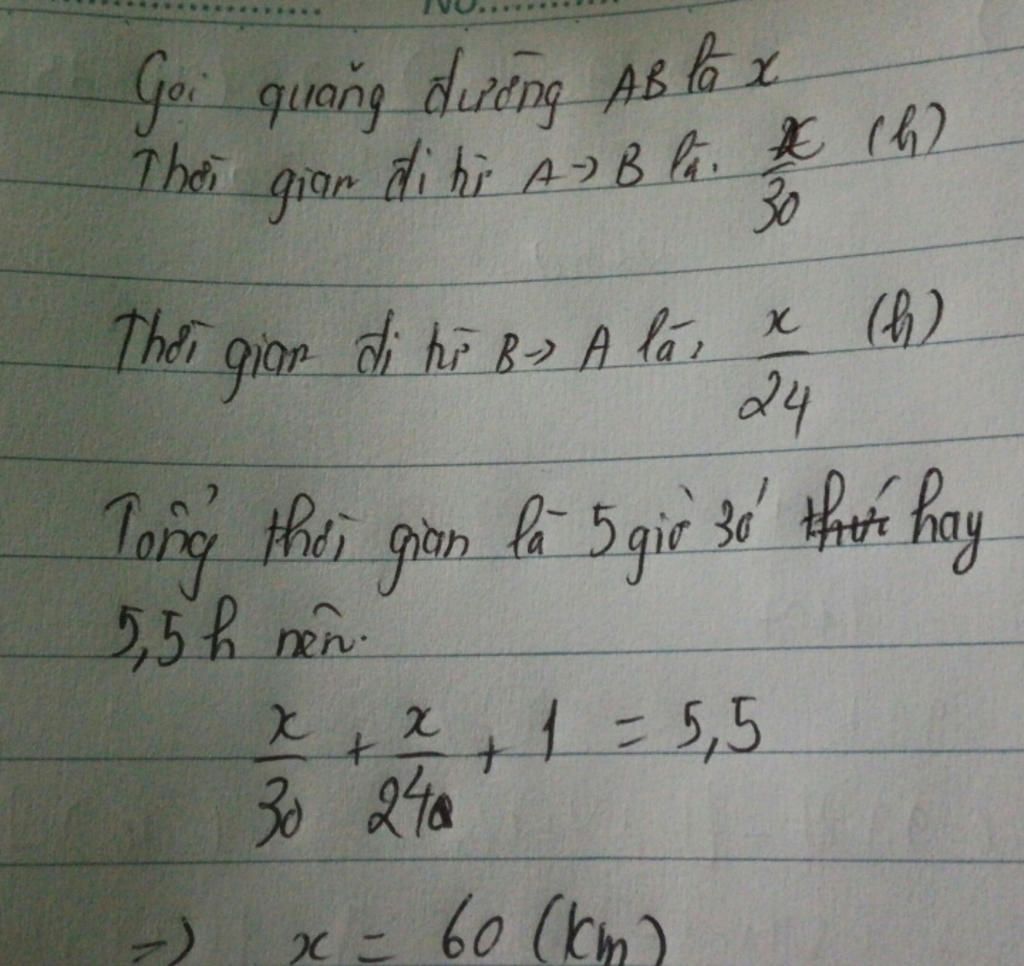 No..............
Gọi quãng đường AB là x
Thời gian đi từ A → B là: x/30 (h)
Thời gian đi từ B → A là: x/24 (h)
Tổng thời gian là 5 giờ 30' hay
5,5h nên.
x/30 + x/24 + 1 = 5,5
=> x = 60 (km)